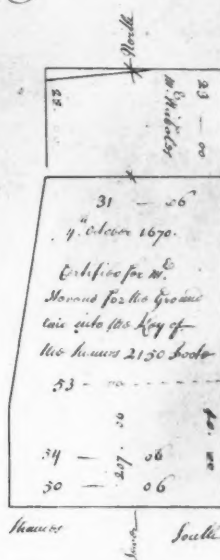 North
23 — 00
31 — 06
4 October 1670.
Certified for Mr
for the Ground
laid into the Key of
the Thames 2150 foote
53 — 00
207 . 06
54 — 06
50 — 06
Thames
South